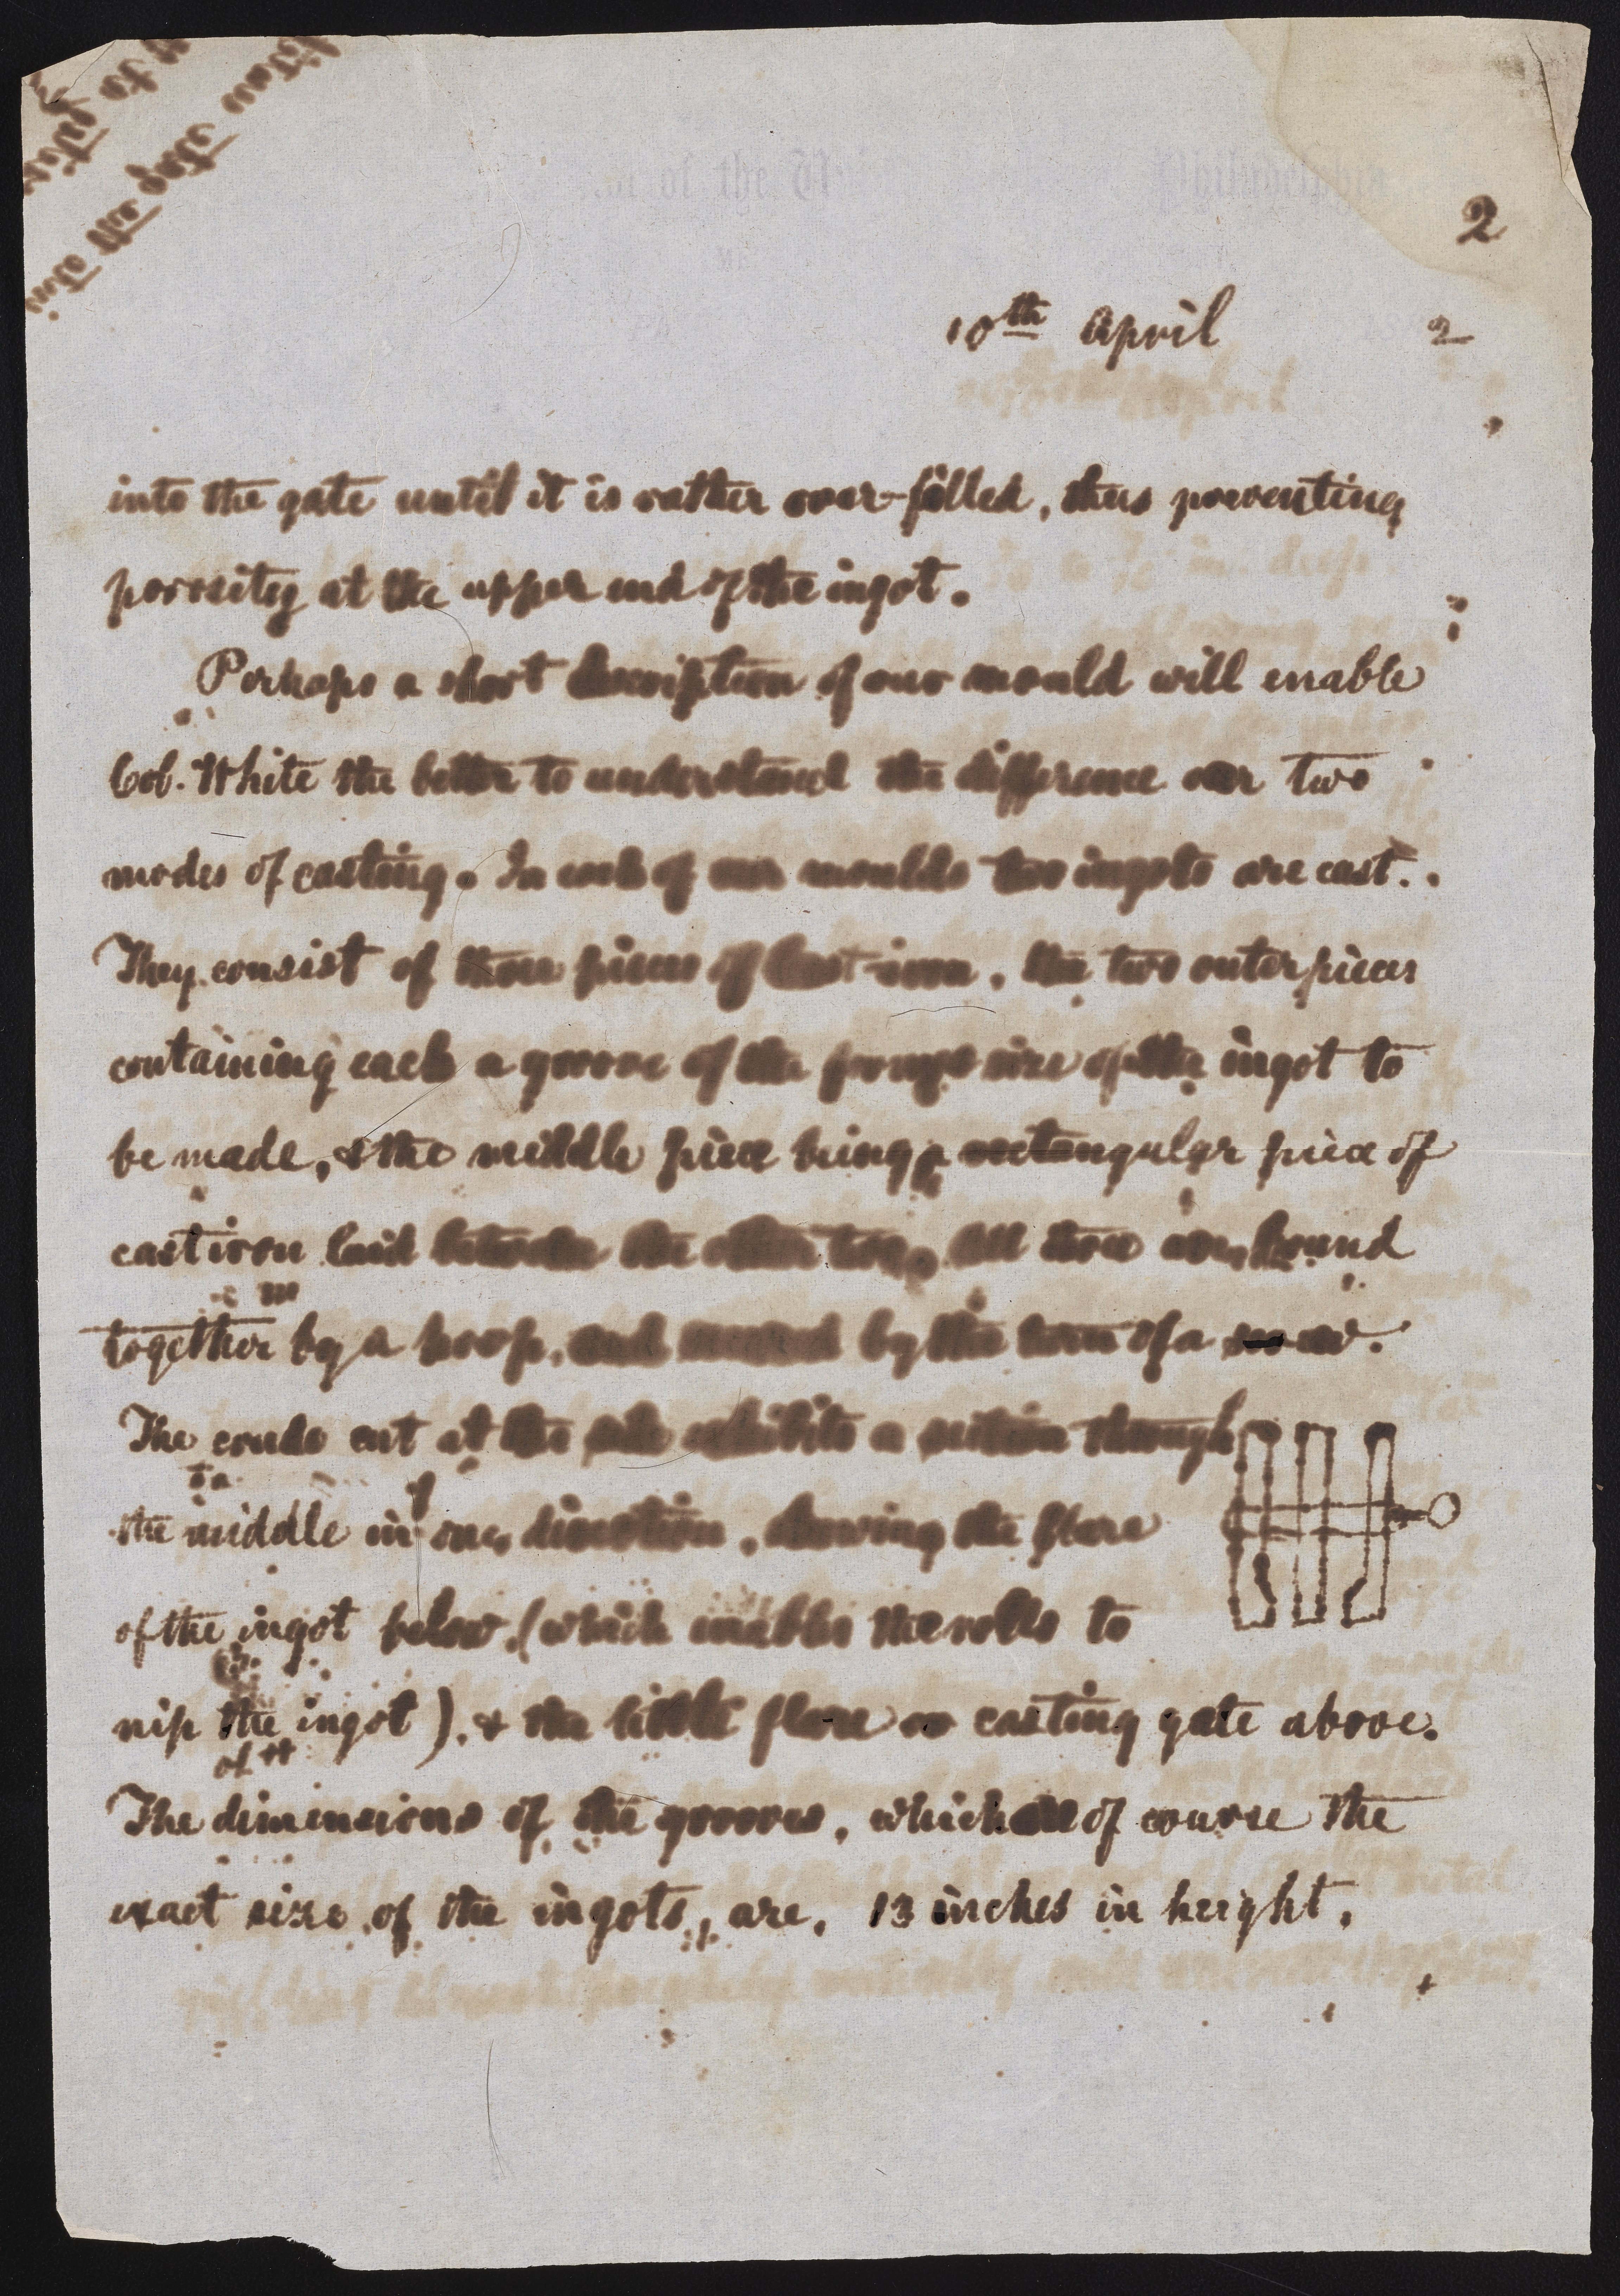 2
10th April 2
into the gate until it is rather over-filled, thus preventing
porosity at the upper end of the ingot.
Perhaps a short description of our mould will enable
Col. White the better to understand the difference our two
modes of casting. In each of our moulds two ingots are cast.
They consist of three pieces of Cast-iron, the two outer pieces
containing each a groove of the proper size of the ingot to
be made, & the middle piece being a rectangular piece of
cast iron laid between the other two. All three are bound
together by a hoop, and secured by the turn of a screw.
The crude cut at the side exhibits a section through
the middle in one direction, showing the flare
of the ingot below (which enables the rolls to
nip the ingot), & the little flare or casting gate above.
The dimensions of the grooves, which are of course the
exact size of the ingots, are, 13 inches in height,